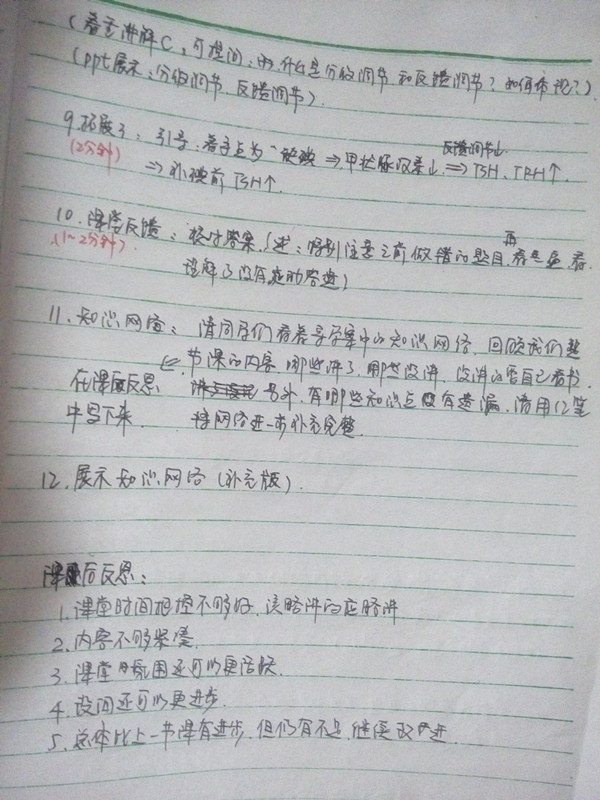 (看着讲解C,可提问:为什么是分级调节和反馈调节?如何体现?)
(ppt展示:分级调节 反馈调节).
反馈调节↓
9.拓展3:引导:看重点为"缺碘⇒甲状腺激素↓⇒TSH、TRH↑
(2分钟)
⇒补碘前TSH↑.
10.课堂反馈:核对答案.(述:特别注意之前做错的题目,再看是否
(1~2分钟).
理解了没有
11.知识网络:请同学们看着导学案中的知识网络,回顾我们整
节课的内容 哪些讲了,哪些没讲,没讲的要自己看书.
在课后反思
另外,有哪些知识点没有遗漏,请用红笔
中写下来.
将网络进一步补充完整.
12.展示知识网络(补充版).
课后反思:
1.课堂时间把握不够好,该略讲的应略讲
2.内容不够紧凑.
3.课堂氛围还可以更活跃.
4.设问还可以更进步.
5.总体比上一节课有进步,但仍有不足,继续改进.